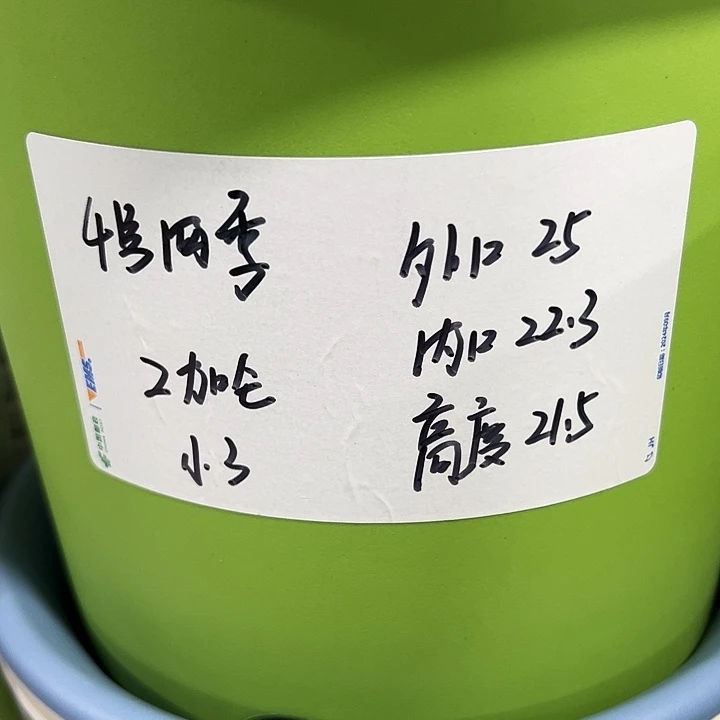 4号四季
2加仑
小.3
外口 25
内口 22.3
高度 21.5